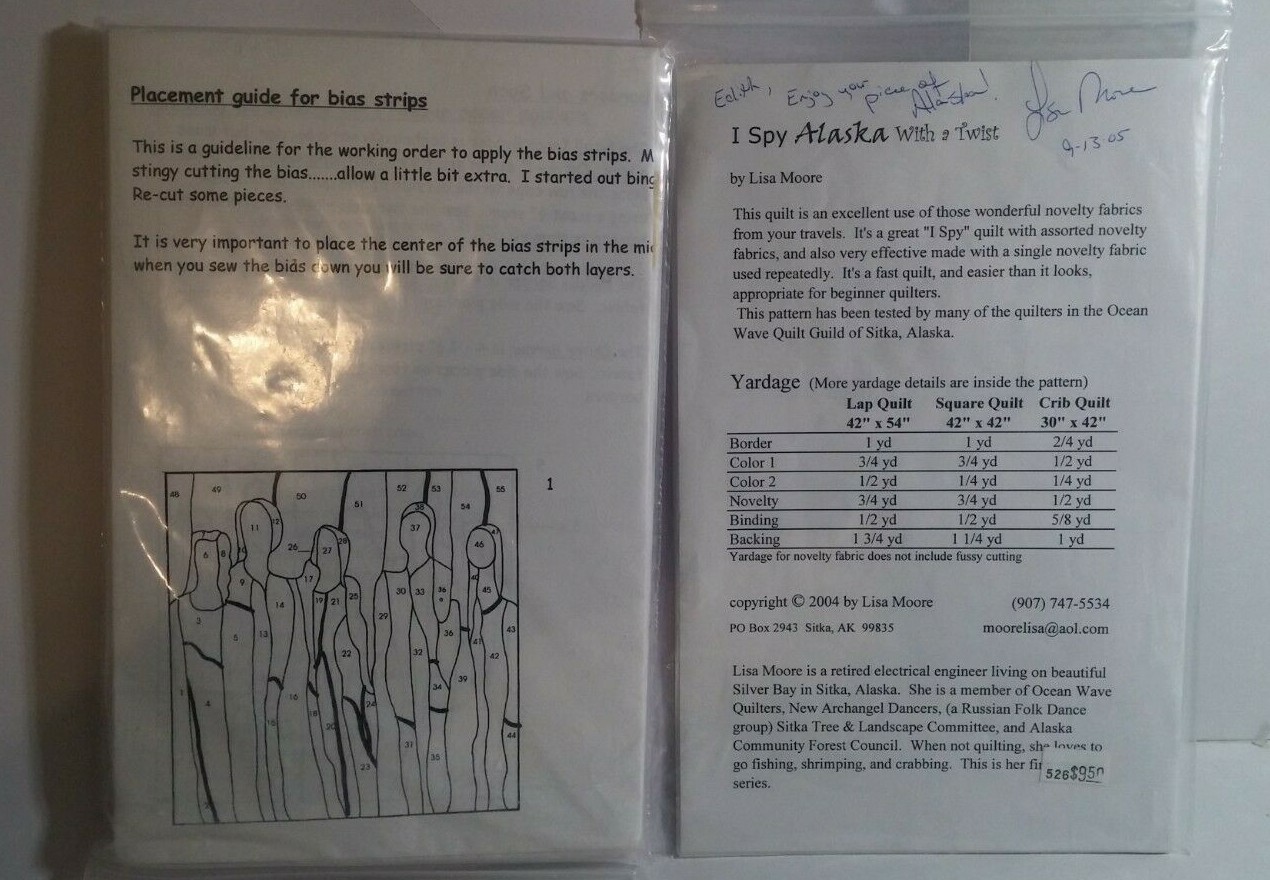 Placement guide for bias strips
This is a guideline for the working order to apply the bias strips. M
stingy cutting the bias.......allow a little bit extra. I started out bing
Re-cut some pieces.
It is very important to place the center of the bias strips in the mi
when you sew the bias down you will be sure to catch both layers.
1
48 49 50 51 52 53 54 55
11 12 38 37 47
6 8 26 27 28 46
10 9 17 36
3 14 19 21 25 30 33 45
5 13 29 36 41 43
22 32 42
1 4 16 34 39
15 18 20 24
31 44
23 35
2
Edith, Enjoy your piece of Alaska! Lisa Moore
9-13-05
I Spy Alaska With a Twist
by Lisa Moore
This quilt is an excellent use of those wonderful novelty fabrics
from your travels. It's a great "I Spy" quilt with assorted novelty
fabrics, and also very effective made with a single novelty fabric
used repeatedly. It's a fast quilt, and easier than it looks,
appropriate for beginner quilters.
This pattern has been tested by many of the quilters in the Ocean
Wave Quilt Guild of Sitka, Alaska.
Yardage (More yardage details are inside the pattern)
Lap Quilt Square Quilt Crib Quilt
42" x 54" 42" x 42" 30" x 42"
Border 1 yd 1 yd 2/4 yd
Color 1 3/4 yd 3/4 yd 1/2 yd
Color 2 1/2 yd 1/4 yd 1/4 yd
Novelty 3/4 yd 3/4 yd 1/2 yd
Binding 1/2 yd 1/2 yd 5/8 yd
Backing 1 3/4 yd 1 1/4 yd 1 yd
Yardage for novelty fabric does not include fussy cutting
copyright © 2004 by Lisa Moore (907) 747-5534
PO Box 2943 Sitka, AK 99835 moorelisa@aol.com
Lisa Moore is a retired electrical engineer living on beautiful
Silver Bay in Sitka, Alaska. She is a member of Ocean Wave
Quilters, New Archangel Dancers, (a Russian Folk Dance
group) Sitka Tree & Landscape Committee, and Alaska
Community Forest Council. When not quilting, she loves to
go fishing, shrimping, and crabbing. This is her fir
series.
526$950